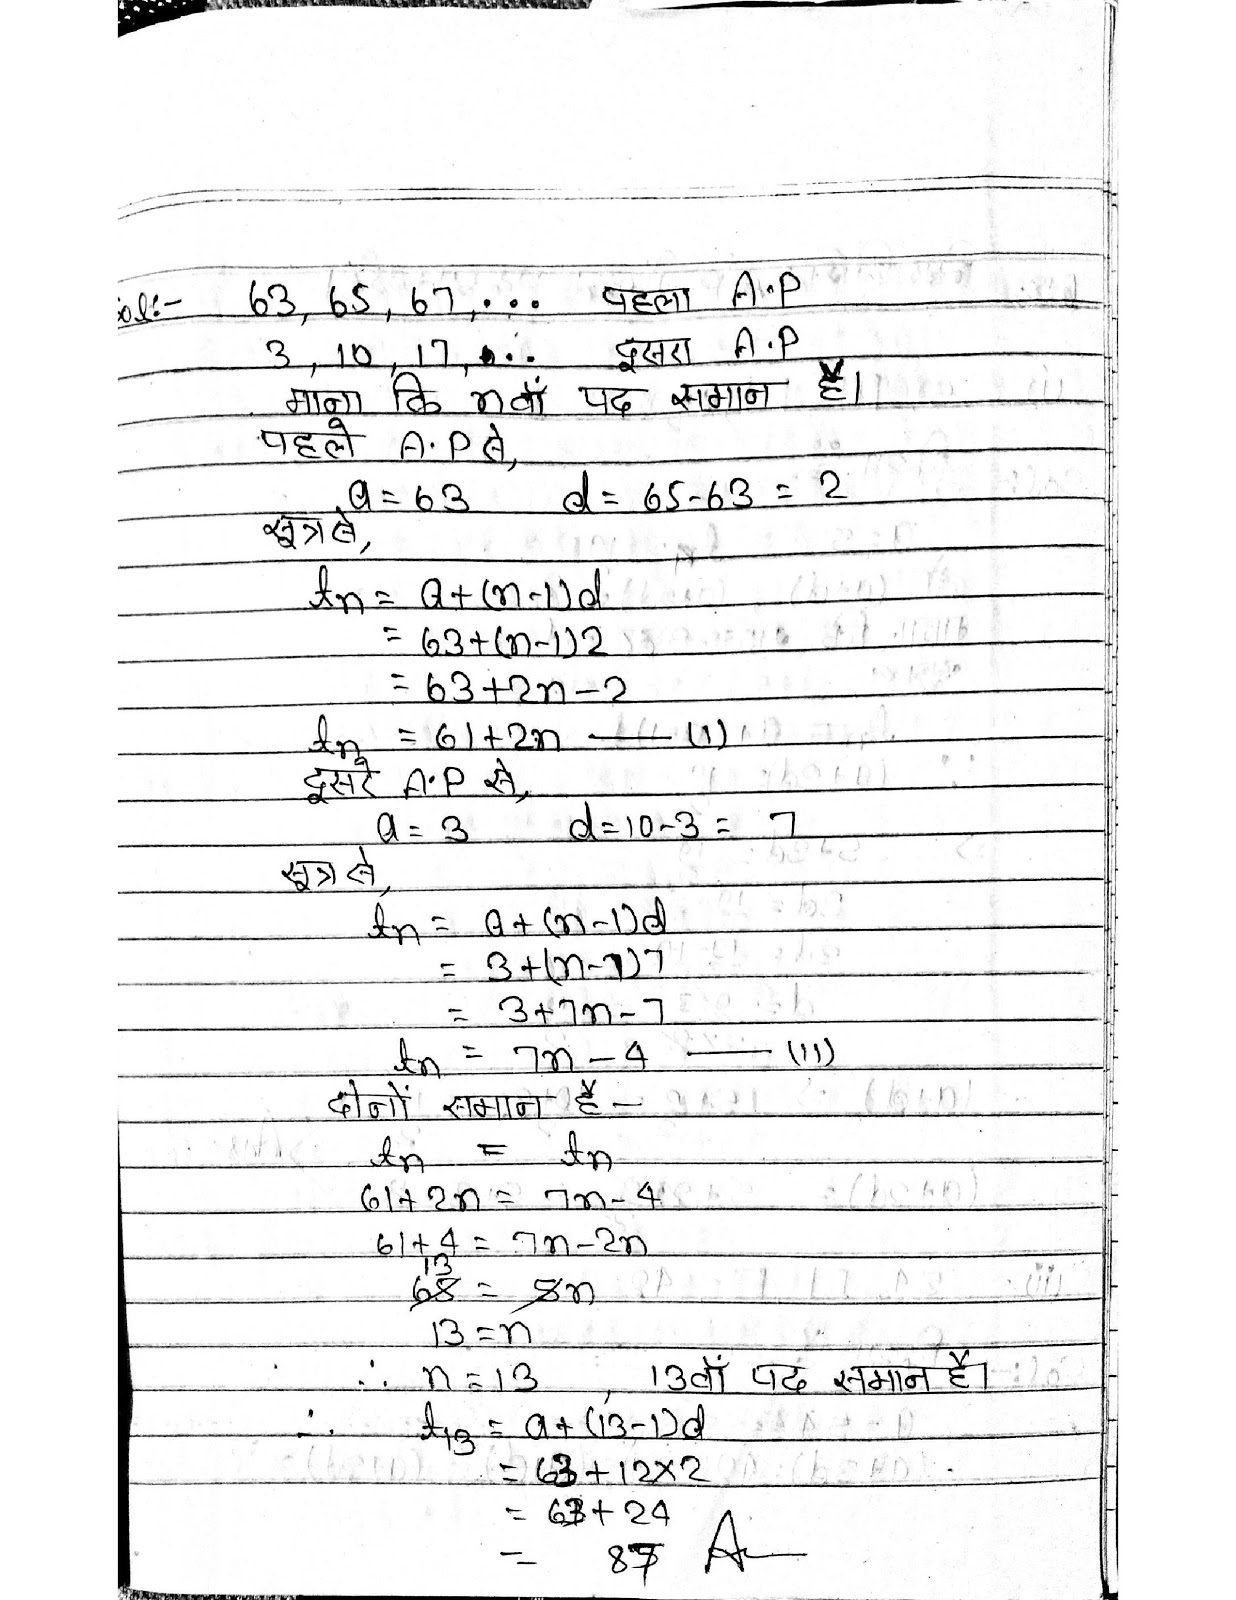 Sol:- 63, 65, 67, ... पहला A.P
3, 10, 17, ... दूसरा A.P
माना कि nवाँ पद समान है।
पहले A.P से,
a = 63 d = 65-63 = 2
सूत्र से,
tn = a+(n-1)d
= 63+(n-1)2
= 63+2n-2
tn = 61+2n —— (i)
दूसरे A.P से,
a = 3 d=10-3 = 7
सूत्र से,
tn = a+(n-1)d
= 3+(n-1)7
= 3+7n-7
tn = 7n-4 —— (ii)
दोनों समान हैं -
tn = tn
61+2n = 7n-4
61+4 = 7n-2n
13
65 = 5n
13 = n
∴ n=13, 13वाँ पद समान है।
∴ t13 = a+(13-1)d
= 63+12×2
= 63+24
= 87